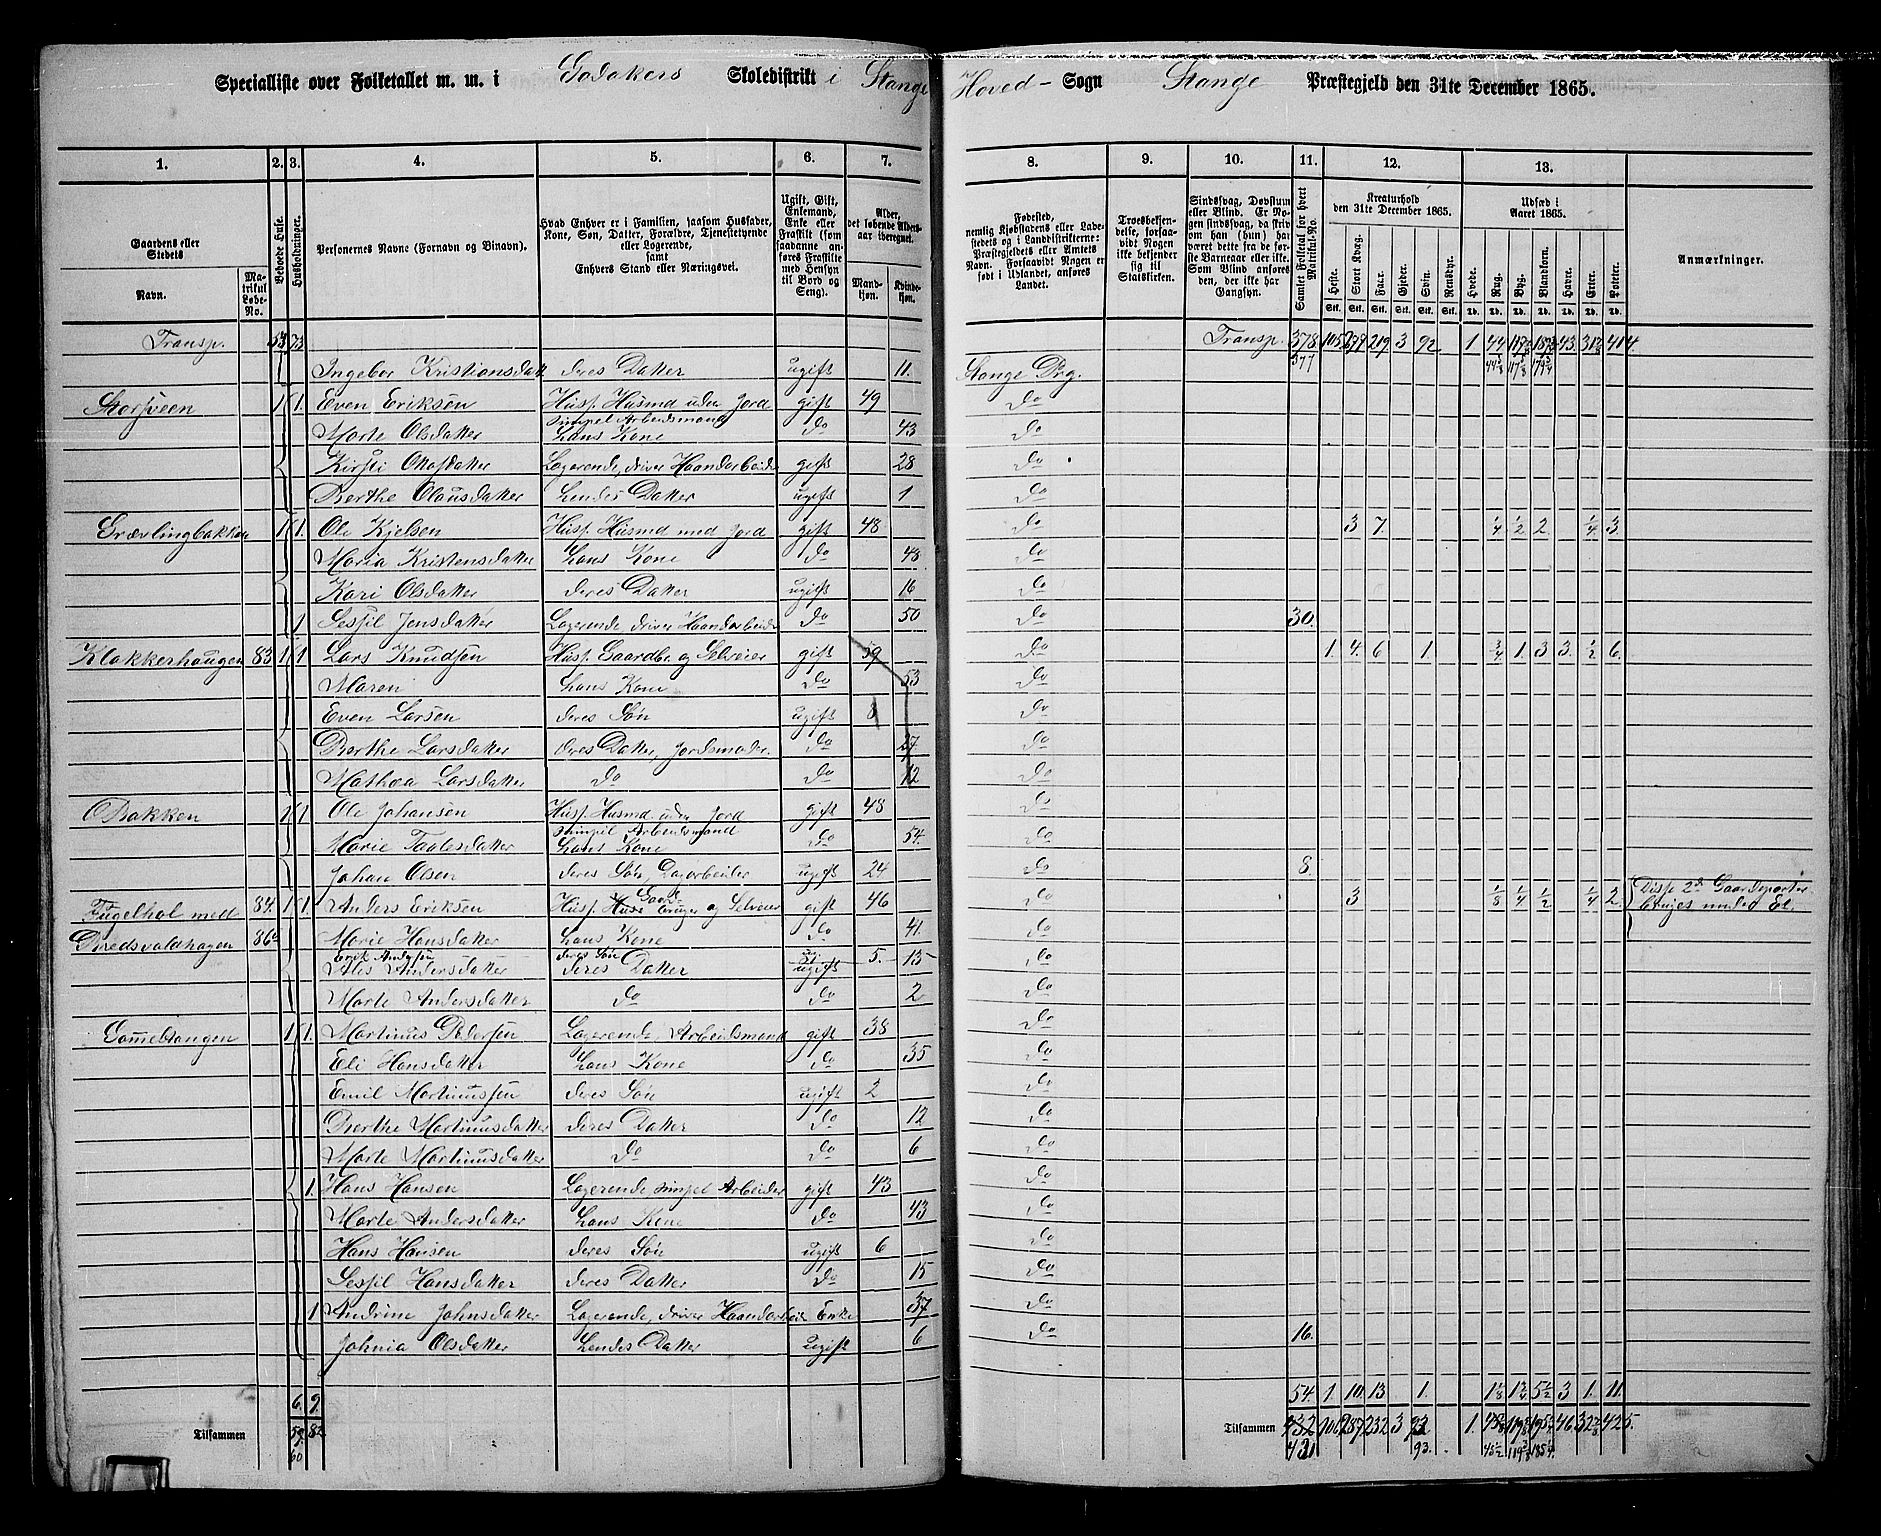 Specialliste over Folketallet m. m. i Godakers Skoledistrikt i Stange Hoved-Sogn Stange Præstegjeld den 31te December 1865.
1. 2. 3. 4. 5. 6. 7. 8. 9. 10. 11. 12. 13.
Gaardens eller Stedets Navn. Matrikul Løbe-No.
Beboede Huse.
Husholdninger.
Personernes Navne (Fornavn og Binavn).
Hvad Enhver er i Familien, saasom Husfader, Kone, Søn, Datter, Forældre, Tjenestetyende eller Logerende, samt Enhvers Stand eller Næringsvei.
Ugift, Gift, Enkemand, Enke eller Fraskilt (som saadanne anføres Fraskilte med Hensyn til Bord og Seng).
Alder, det løbende Aldersaar iberegnet. Mandkjøn. Kvindekjøn.
Fødested, nemlig Kjøbstadens eller Ladestedets og i Landdistrikterne: Præstegjeldets eller Amtets Navn. Forsaavidt Nogen er født i Udlandet, anføres Landet.
Troesbekjendelse, forsaavidt Nogen ikke bekjender sig til Statskirken.
Sindssvag, Døvstum eller Blind. Er Nogen sindssvag, da skrives om han (hun) har været dette fra de første Barneaar eller ikke. Som Blind anføres den, der ikke har Gangsyn.
Samlet Folketal for hvert Matrikul-No.
Kreaturhold den 31te December 1865. Heste. Stort Kvæg. Faar. Gjeder. Svin. Rensdyr.
Udsæd i Aaret 1865. Hvede. Rug. Byg. Blandkorn. Havre. Erter. Poteter.
Anmærkninger.
Transp. 53 73 Transp. 378 105 3 92 1 44 43 414
377
Ingebor Kristiansdatt deres Datter ugift 11. Stange Prg.
Storsveen 1 1. Even Eriksen Husf. Husmd uden Jord gift 49 do
Simpel Arbeidsmand
Marte Olsdatter hans Kone do 43 do
Kirsti Olsdatter Logerende, driver Haandarbeide gift 28 do
Berthe Olausdatter hendes Datter ugift 1 do
Grævlingbakken 1 1. Ole Kjelsen Husf. Husmd med Jord gift 48 do 3 7 1/4 1/2 2 1/4 3.
Maria Kristensdatter hans Kone do 48 do
Kari Olsdatter deres Datter ugift 16 do
1 Sessil Jensdatter Logerende driver Haandarbeide do 50 do 30.
Klokkerhaugen 83 1 1 Lars Knudsen Husf. Gaardbr. og Selveier gift 59 do 1. 4. 6 1. 3/4 1. 3 3. 1/2 6.
Maren hans Kone do 53 do
Even Larsen deres Søn ugift 8 do
Berthe Larsdatter deres Datter, Jordemoder do 27. do
Mathea Larsdatter do do 12 do
Bakken 1 1 Ole Johansen Husf. Husmd uden Jord gift 48 do
Simpel Arbeidsmand
Marie Taalesdatter hans Kone do 54. do
Johan Olsen deres Søn, Dagarbeider ugift 24 do 8.
Fuglehol med 84. 1 1. Anders Eriksen Husf. Gaardbruger og Selveier gift 46 do 3 1/8 1/4 1/2 1/4 2. Disse 2de Gaardeparter
bruges under Et.
Bredsvaldhagen 86 Marie Hansdatter hans Kone do 41. do
Erik Andersen deres Søn ug. 5.
Andersdatter deres Datter ugift 15 do
Marte Andersdatter do do 2 do
Gameltangen 1 1. Martinus Pedersen Logerende, Arbeidsmand gift 38 do
Eli Hansdatter hans Kone do 35 do
Emil Martinussen deres Søn ugift 2 do
Berthe Martinusdatter deres Datter do 12 do
Marte Martinusdatter do do 6 do
1. Hans Hansen Logerende simpel Arbeider gift 43 do
Marte Andersdatter hans Kone do 43 do
Hans Hansen deres Søn ugift 6 do
Sessil Hansdatter deres Datter do 15 do
1 Andrine Johnsdatter Logerende, driver Haandarbeide Enke 37 do
Johnia Olsdatter hendes Datter ugift 6 do 16.
6. 9. 54. 1. 10. 13 1. 1 1/8 1 3/4 5 1/2 3 1. 11.
Tilsammen 59 82 Tilsammen 432 106 287 232 3 93 1. 46 425.
60 431 93.